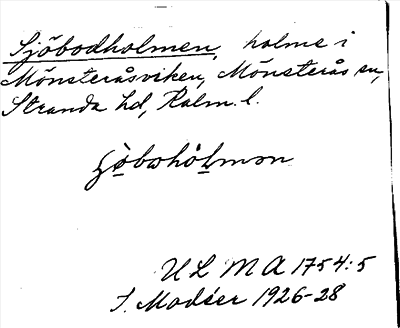 Sjöbodholmen, holme i
Mönsteråsviken, Mönsterås sn,
Stranda hd, Kalm. l.
ULMA 1754:5
S. Modéer 1926-28